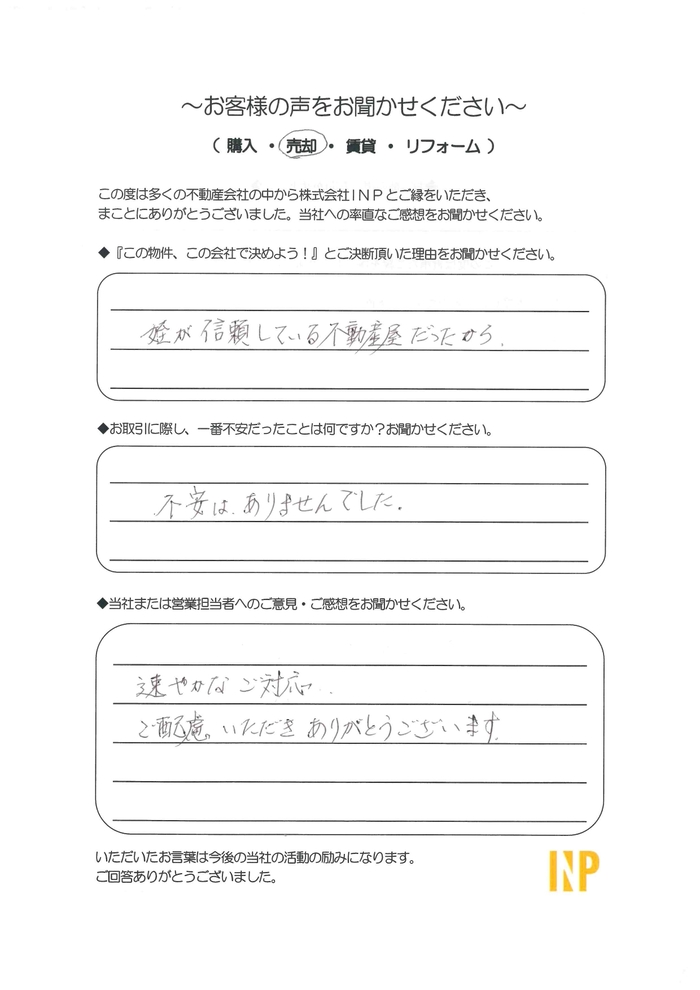 ～お客様の声をお聞かせください～
（ 購入 ・ 売却 ・ 賃貸 ・ リフォーム ）
この度は多くの不動産会社の中から株式会社ＩＮＰとご縁をいただき、
まことにありがとうございました。当社への率直なご感想をお聞かせください。
◆『この物件、この会社で決めよう！』とご決断頂いた理由をお聞かせください。
姪が信頼している不動産屋だったから.
◆お取引に際し、一番不安だったことは何ですか？お聞かせください。
不安は、ありませんでした。
◆当社または営業担当者へのご意見・ご感想をお聞かせください。
速やかなご対応、
ご配慮。いただきありがとうございます.
いただいたお言葉は今後の当社の活動の励みになります。
ご回答ありがとうございました。
INP